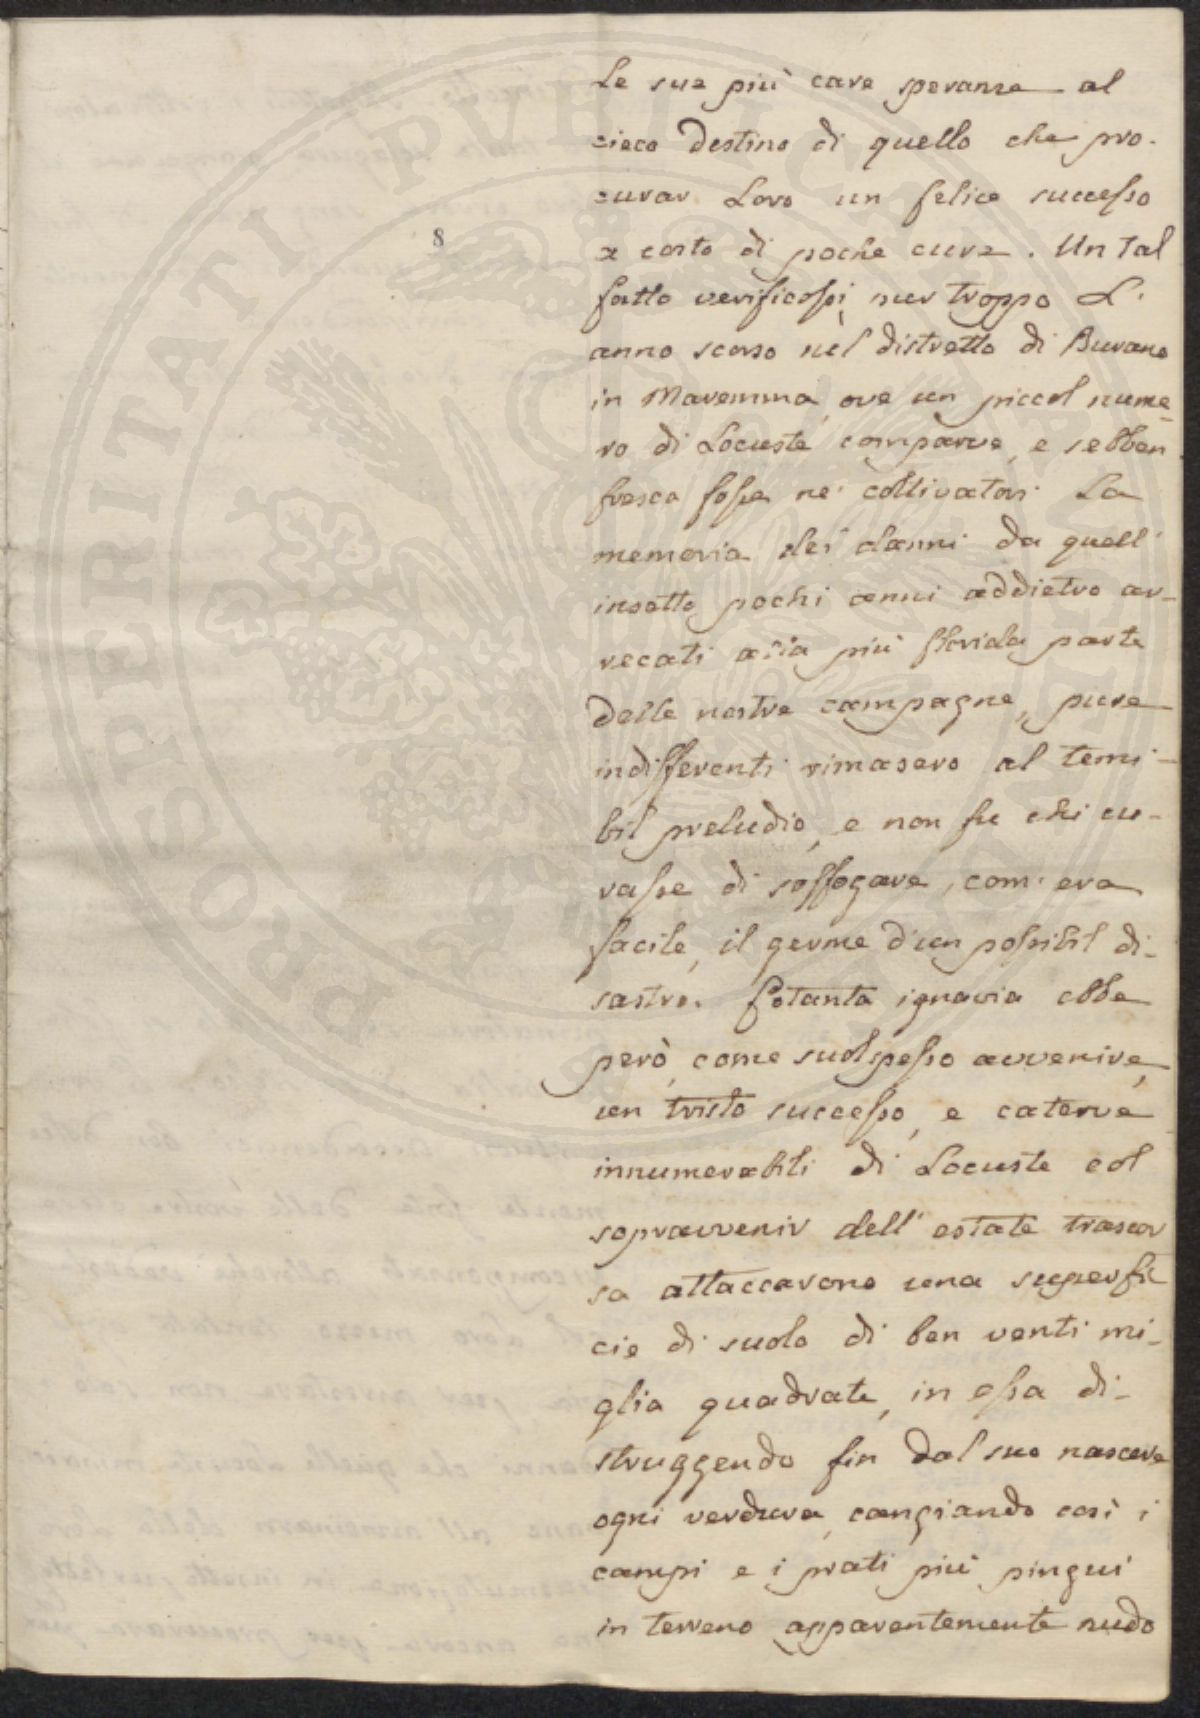 8
le sue più care speranze al
cieco destino di quello che pro-
curar loro un felice successo
a costo di poche cure. Un tal
fatto verificossi pur troppo l'
anno scorso nel distretto di Burano
in Maremma, ove un piccol nume-
ro di Locuste comparve, e sebben
fresca fosse ne' coltivatori la
memoria dei danni da quell'
insetto pochi anni addietro ar-
recati alla più florida parte
delle nostre campagne, pure
indifferenti rimasero al temi-
bil preludio, e non fu chi cu-
rasse di soffogare, com' era
facile, il germe d'un possibil di-
sastro. Cotanta ignavia ebbe
però, come suol spesso avvenire,
un tristo successo, e caterve
innumerabili di Locuste col
sopravvenir dell' estate trascor
sa attaccarono una superfi
cie di suolo di ben venti mi-
glia quadrate, in essa di-
struggendo fin dal suo nascere
ogni verdura, cangiando così i
campi e i prati più pingui
in terreno apparentemente nudo
PROSPERITATI PVBLICAE